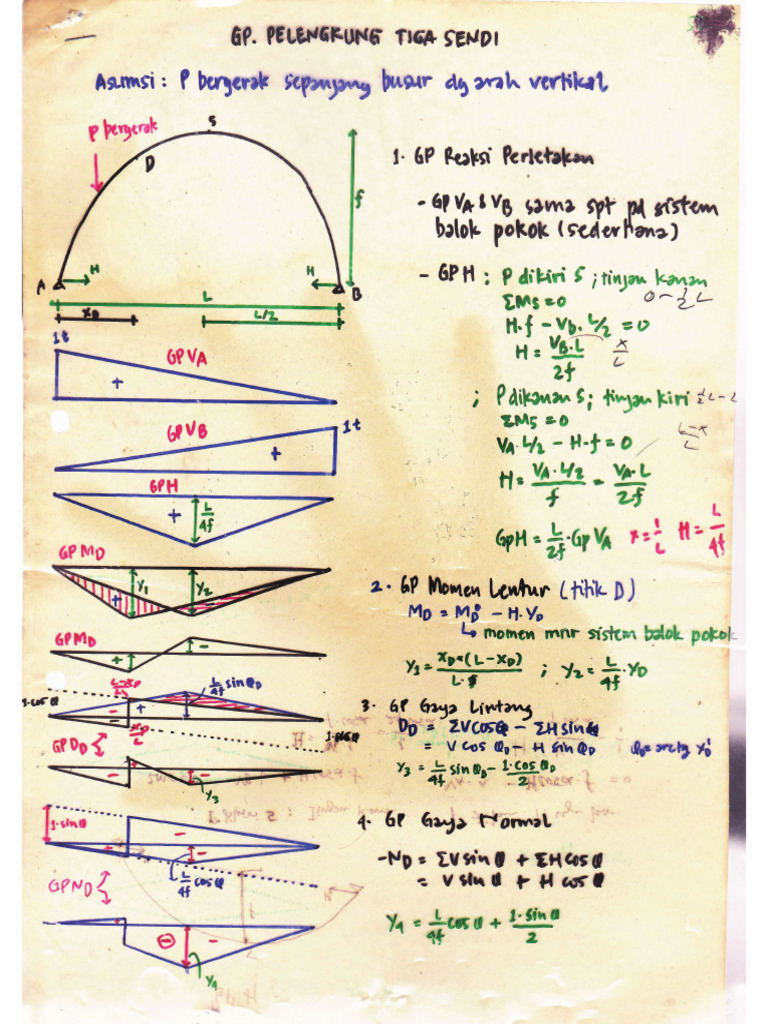 GP. PELENGKUNG TIGA SENDI
Asumsi : P bergerak sepanjang busur dg arah vertikal
P bergerak
S
D
f
H
H
A
B
L
XD
L/2
1t
GP VA
+
GP VB
1t
+
GPH
+
L/4f
GP MD
+
Y1
Y2
GP MD
+
-
1·cos φ
L-XD/L
+
L/4f sin φD
-
-
XD/L
1·cos φ
GP DD
-
-
Y3
1·sin θ
-
+
-
L/4f cos φ
GP ND
⊖
-
Y4
1. GP Reaksi Perletakan
- GP VA & VB sama spt pd sistem
balok pokok (sederhana)
- GPH ; P dikiri S ; tinjau kanan
0 - ½ L
ΣMS = 0
H.f - Vb. L/2 = 0
H = VB.L/2f
x/L
; P dikanan S ; tinjau kiri
½L - L
ΣMS = 0
VA.L/2 - H.f = 0
L-x/L
H = VA.L/2/f = VA.L/2f
GpH = L/2f · Gp VA
H = L/4f
2. GP Momen Lentur (titik D)
MD = MD° - H.YD
↳ momen mnr sistem balok pokok
Y1 = XD*(L-XD)/L ; Y2 = L/4f · YD
3. GP Gaya Lintang
DD = ΣV cos φ - ΣH sin φ
= V cos φD - H sin φD
φD = arc tg YD'
Y3 = L/4f sin φD - 1.cos φD/2
4. GP Gaya Normal
-ND = ΣV sin φ + ΣH cos φ
= V sin φ + H cos φ
Y4 = L/4f cos θ + 1·sin θ/2